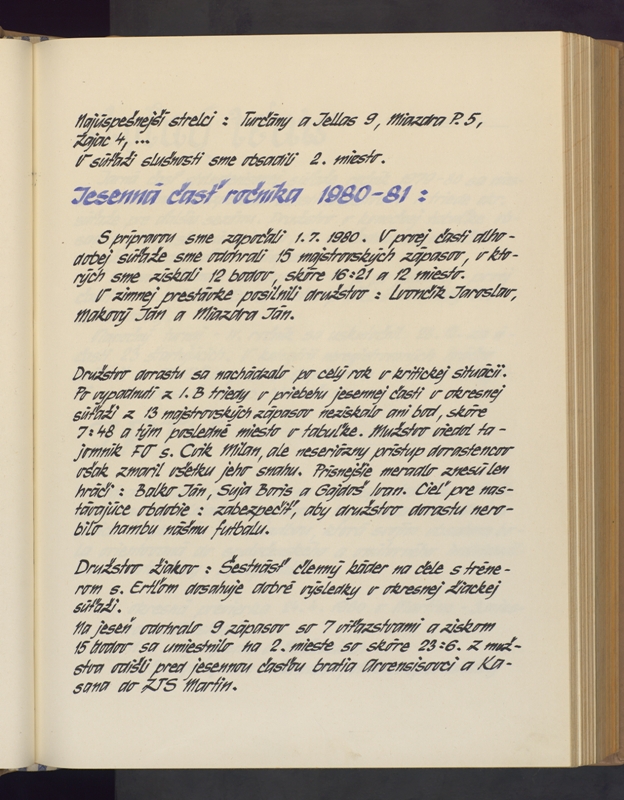 Najúspešnejší strelci : Turčány a Jellas 9, Miazdra P. 5,
Zajac 4, ...
V súťaži slušnosti sme obsadili 2. miesto.
Jesenná časť ročníka 1980-81 :
S prípravou sme započali 1.7. 1980. V prvej časti dlho-
dobej súťaže sme odohrali 15 majstrovských zápasov, v kto-
rých sme získali 12 bodov, skóre 16:21 a 12 miesto.
V zimnej prestávke posilnili družstvo : Lvončík Jaroslav,
Makový Ján a Miazdra Ján.
Družstvo dorastu sa nachádzalo po celý rok v kritickej situácii.
Po vypadnutí z 1. B triedy v priebehu jesennej časti v okresnej
súťaži z 13 majstrovských zápasov nezískalo ani bod, skóre
7:48 a tým posledné miesto v tabuľke. Mužstvo viedol ta-
jomník FO s. Cvik Milan, ale neseriózny prístup dorastencov
však zmaril všetku jeho snahu. Prísnejšie meradlo znesú len
hráči : Balko Ján, Suja Boris a Gajdoš Ivan. Cieľ pre nas-
távajúce obdobie : zabezpečiť, aby družstvo dorastu nero-
bilo hambu nášmu futbalu.
Družstvo žiakov : Šestnásť členný káder na čele s tréne-
rom s. Ertľom dosahuje dobré výsledky v okresnej žiackej
súťaži.
Na jeseň odohralo 9 zápasov so 7 víťazstvami a ziskom
15 bodov sa umiestnilo na 2. mieste so skóre 23:6. Z muž-
stva odišli pred jesennou časťou bratia Arvensisovci a Ka-
sana do ZŤS Martin.